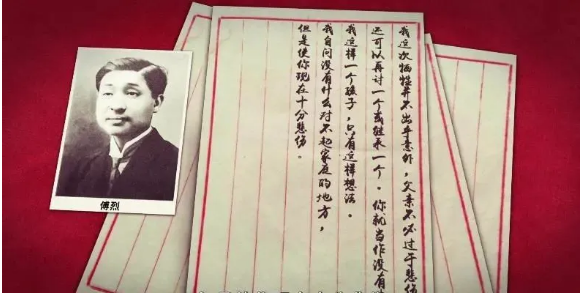 我这次牺牲并不出乎意外，父亲不必过于悲伤
还可以再讨一个或继承一个。你就当作没有
我这样一个孩子，只有这样想法。
我自问没有什么对不起家庭的地方，
但是使你现在十分悲伤。
傅烈